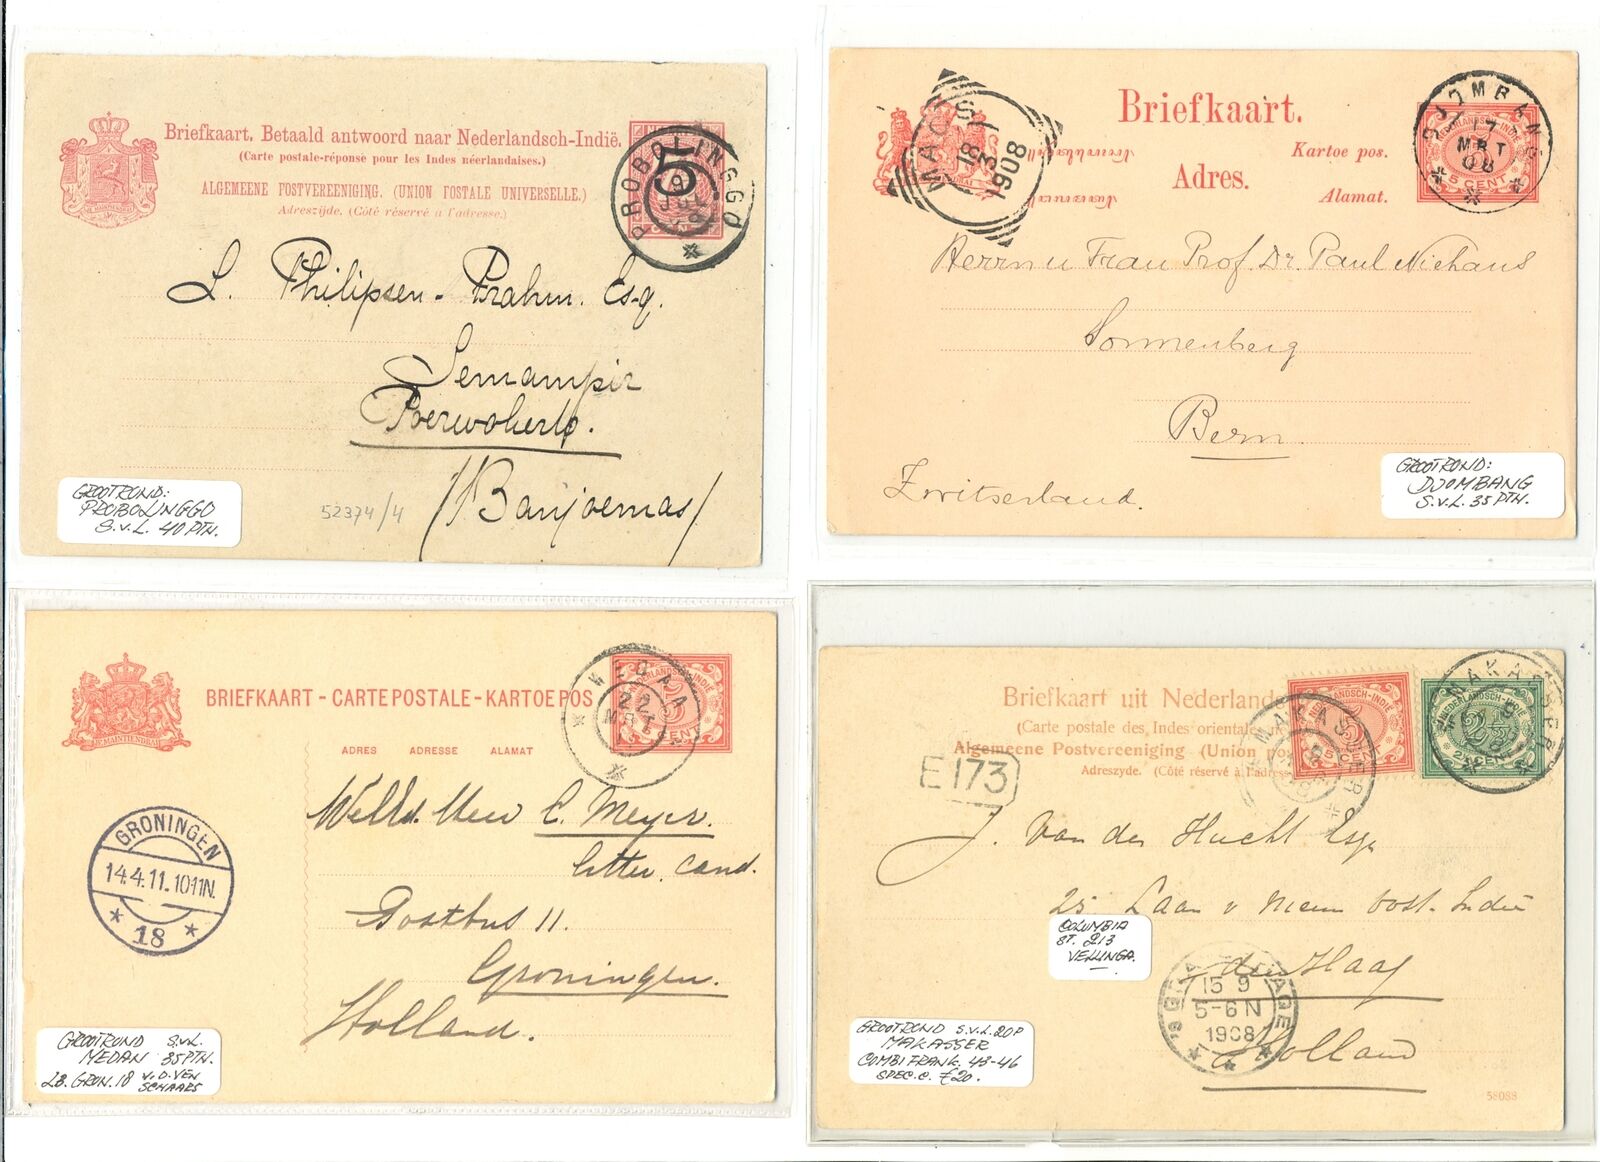 Briefkaart. Betaald antwoord naar Nederlandsch-Indië.
(Carte postale-réponse pour les Indes néerlandaises.)
ALGEMEENE POSTVEREENIGING. (UNION POSTALE UNIVERSELLE.)
Adreszijde. (Côté réservé à l'adresse.)
5
PROBOLINGGO
L. Philipsen-Prahm. Esq.
Semampir
Poerwokerto.
/Banjoemas/
52374/4
GROOTROND:
PROBOLINGGO
S.v.L. 40 PTN.
MAOS
18 3
1908
Briefkaart.
Kartoe pos.
Adres.
Alamat.
DJOMBANG
17
MRT
08
5 CENT
Herrn u Frau Prof. Dr. Paul Niehans
Sonnenberg
Bern.
Zwitserland.
GROOTROND:
DJOMBANG
S.v.L. 35 PTN.
JE MAINTIENDRAI
BRIEFKAART-CARTE POSTALE-KARTOE POS
ADRES ADRESSE ALAMAT
NEDERLANDSCH-INDIË
5
CENT
22
MRT
GRONINGEN
14.4.11.10-11N.
18
C. Meyer.
litter. cand.
Postbus 11.
Groningen.
Holland.
GROOTROND S.v.L.
MEDAN 35 PTN.
LB. GRON. 18 V.D. VEN
SCHAAFS
Briefkaart uit Nederland
(Carte postale des Indes oriental
Algemeene Postvereeniging (Union po
Adreszyde. (Côté réservé à l'adress
MAKASSER
NEDERLANDSCH-INDIË
2½ CENT
MAKASSER
E173
J. van der Hucht Esq.
25 Laan v Nieuw Oost-Indië
den Haag
Holland
COLUMBIA
ST. 213
VELLINGA.
'S-GRAVENHAGE
15 9
5-6 N
1908
GROOTROND S.v.L. 20P
MAKASSER
COMBI FRANK. 43-46
SPEC. C. ƒ20.
58088